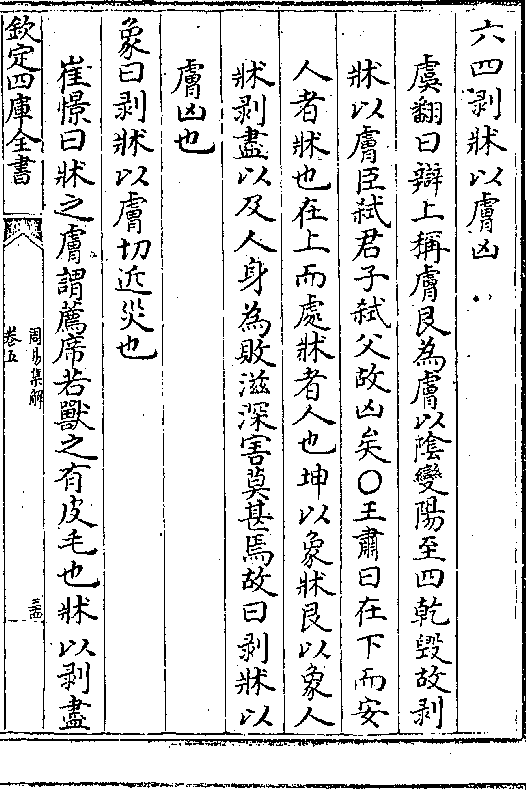 六四剥牀以膚凶
虞翻曰辯上稱膚艮為膚以陰變陽至四乾毀故剥
牀以膚臣弑君子弑父故凶矣〇王肅曰在下而安
人者牀也在上而處牀者人也坤以象牀艮以象人
牀剥盡以及人身為敗滋深害莫甚焉故曰剥牀以
膚凶也
象曰剥牀以膚切近災也
崔憬曰牀之膚謂薦席若獸之有皮毛也牀以剥盡
欽定四庫全書
周易集解
卷五